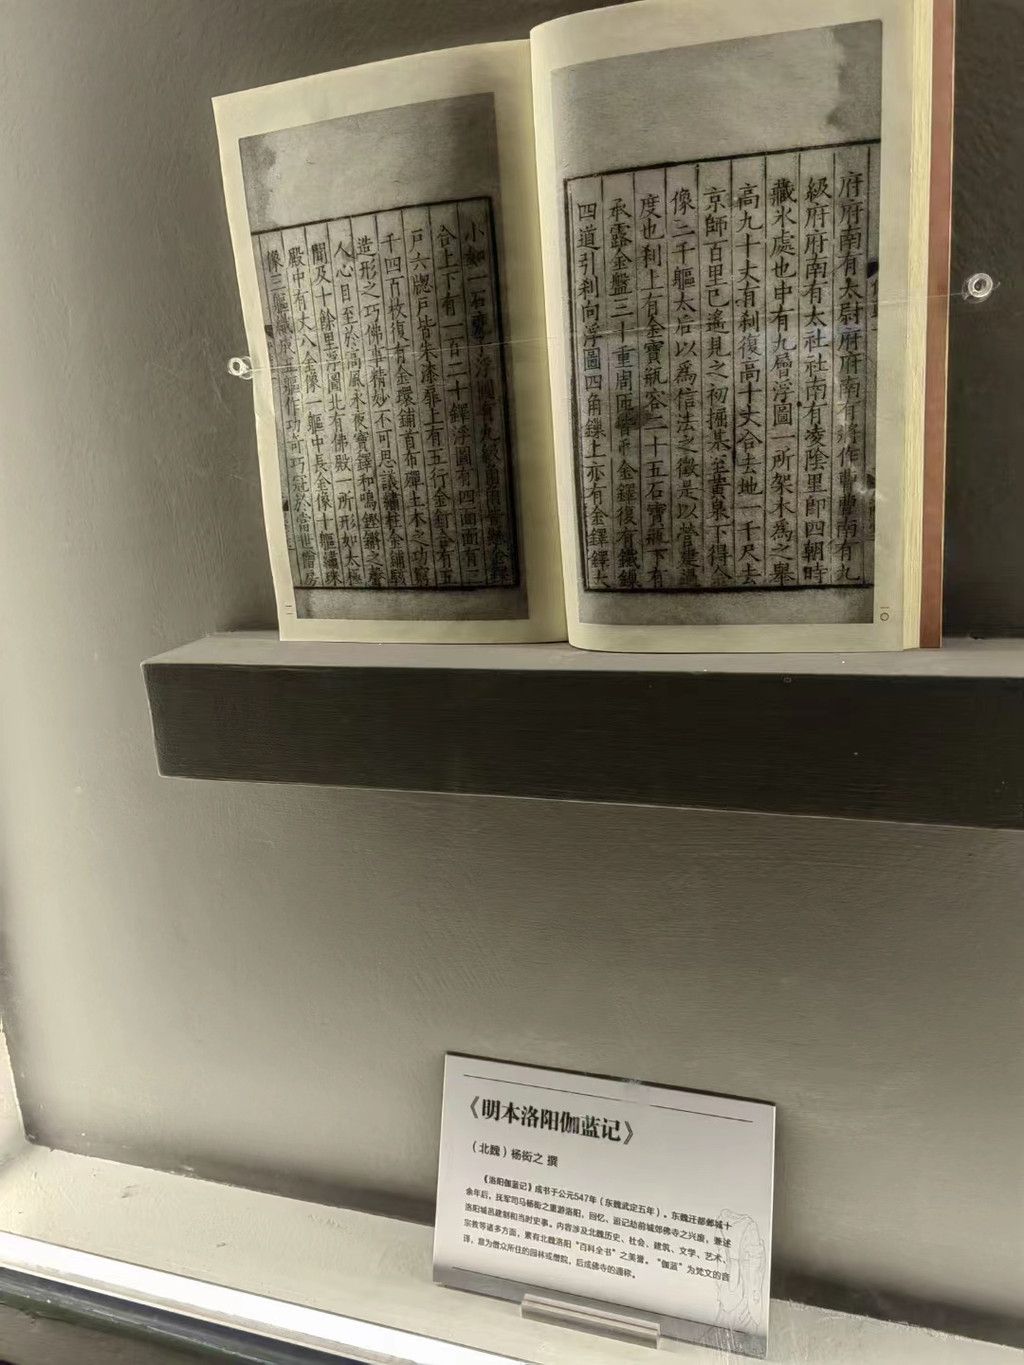 府府南有太尉府府南有將作曹曹南有九
級府府南有太社社南有凌陰里即四朝時
藏氷處也中有九層浮圖一所架木為之舉
高九十丈有刹復高十丈合去地一千尺去
京師百里已遙見之初掘基至黃泉下得金
像三千軀太后以為信法之徵是以營建過
度也刹上有金寶瓶容二十五石寶瓶下有
承露金盤三十重周匝 金鐸復有鐵鏁
四道引刹向浮圖四角鏁上亦有金鐸鐸大
一〇
小如一石 浮圖有九級角角皆懸金
合上下有一百二十鐸浮圖有四面面有三
戸六牕戸皆朱漆扉上有五行金釘 有五
千四百枚復有金環鋪首布殫土木之功窮
造形之巧佛事精妙不可思議繡柱金鋪駭
人心目至於高風永夜寶鐸和鳴鏗鏘之聲
聞及十餘里浮圖北有佛殿一所形如太極
殿中有丈八金像一軀中長金像十軀繡珠
像三軀 軀作功奇巧冠於當世僧房
一一
《明本洛阳伽蓝记》
（北魏）杨衒之 撰
《洛阳伽蓝记》成书于公元547年（东魏武定五年）。东魏迁都邺城十
余年后，抚军司马杨衒之重游洛阳，回忆、追记劫前城郊佛寺之兴废，兼述
洛阳城邑建制和当时史事。内容涉及北魏历史、社会、建筑、文学、艺术、
宗教等诸多方面，素有北魏洛阳“百科全书”之美誉。“伽蓝”为梵文的音
译，意为僧众所住的园林或僧院，后成佛寺的通称。